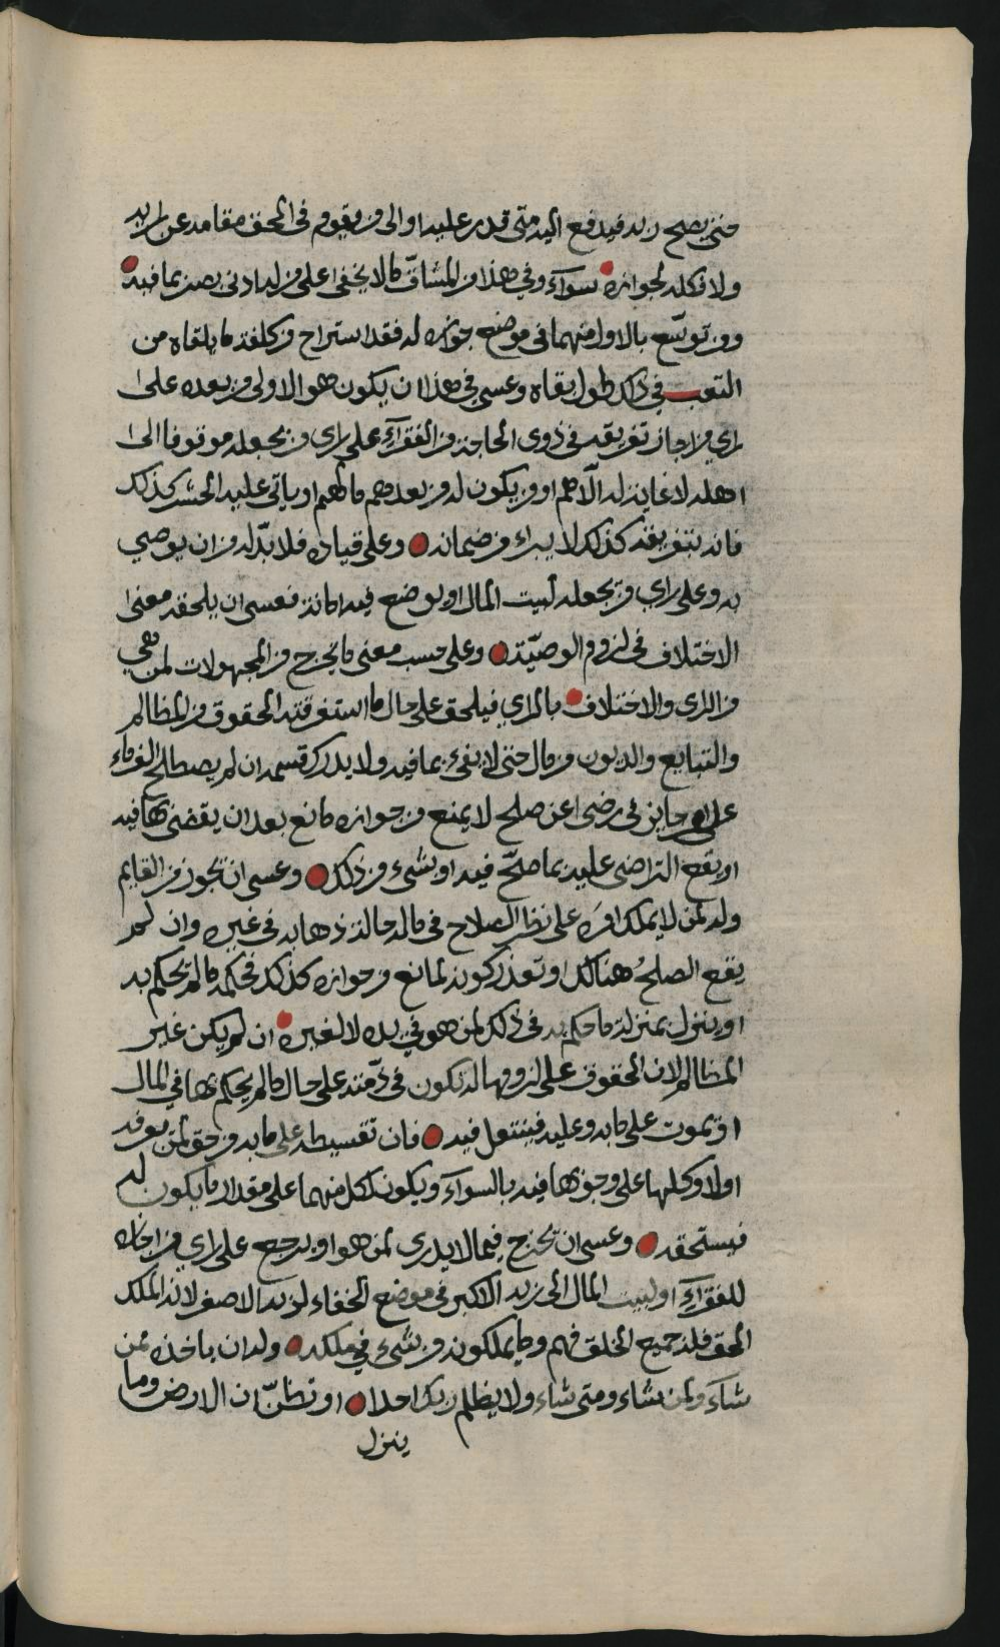 حتى يصح ربه فيدفع اليه متى قدر عليه او الى من يقوم في الحق مقامه عن
ولا فكله لجوازه سواء وفي هذا من المشاق ما لا يخفى اعلى من له ادنى بصر بما فيه
ومن توسع بالاول منهما في موضع جوازه له فقد استراح من كلفة ما يلقاه من
التعب في ذلك طول بقاه وعسى في هذا ان يكون هو الاولى من بعده على
راي من اجاز تفريقه في ذوى الحاجة من الفقراء على راى من يجعله موقوفا الى
اهله لا غاية له الا هم او من يكون له من بعدهم ما لهم او ياتى عليه الحشر كذلك
فانه بتفريقه كذلك لا يبراء من ضمانه وعلى قياده فلا بد له من ان يوصي
به وعلى راي من يجعله لبيت المال او يوضع فيه امانة فعسى ان يلحقه معنى
الاختلاف في لزوم الوصية وعلى حسب معنى ما يخرج من المجهولات لمن هي
من الراى والاختلاف بالراي فيلحق على حال ما استغرقته الحقوق من المظالم
والتبايع والديون من مال حتى لا يفىء بما فيه ولا يدرك قسمه ان لم يصطلح الغرماء
على امر جايز في رضى اعن صلح لا يمنع من جوازه مانع بعد ان يقضى بها فيه
او يقع التراضى عليه بما صلح فيه او بشىء من ذلك وعسى ان يجوز من القايم
وله لمن لا يملك امره على نظر الصلاح في ماله حالة ذهابه في غيره وان لم
يقع الصلح هنالك او تعذر كونه لمانع من جوازه كذلك فحكمه ما لم يحكم به
او ينزل بمنزلة ما حكم به في ذلك لمن هو في يده لا لغيره ان لم يكن غير
المظالم لان الحقوق على لزومها له تكون في ذمته على حال ما لم يحكم بها في المال
او يموت على ما به وعليه فينتقل فيه فان تقسيطه على ما به من حق لمن يعرفه
اولا وكلها على وجوبها فيه بالسواء ويكون لكل منهما على مقدار ما يكون له
فيستحقه وعسى ان يخرج فيما لا يدرى لمن هو او يرجع على راي من اجازه
للفقراء او لبيت المال الى ربه الاكبر في موضع الخفاء لربه الاصغر لانه الملك
الحق فله جميع الخلق فهم وما يملكونه من شىء في ملكه وله ان ياخذه ممن
شاء ولمن يشاء ومتى شاء ولا يظلم ربك احدا او تظن ان الارض وما
ينزل